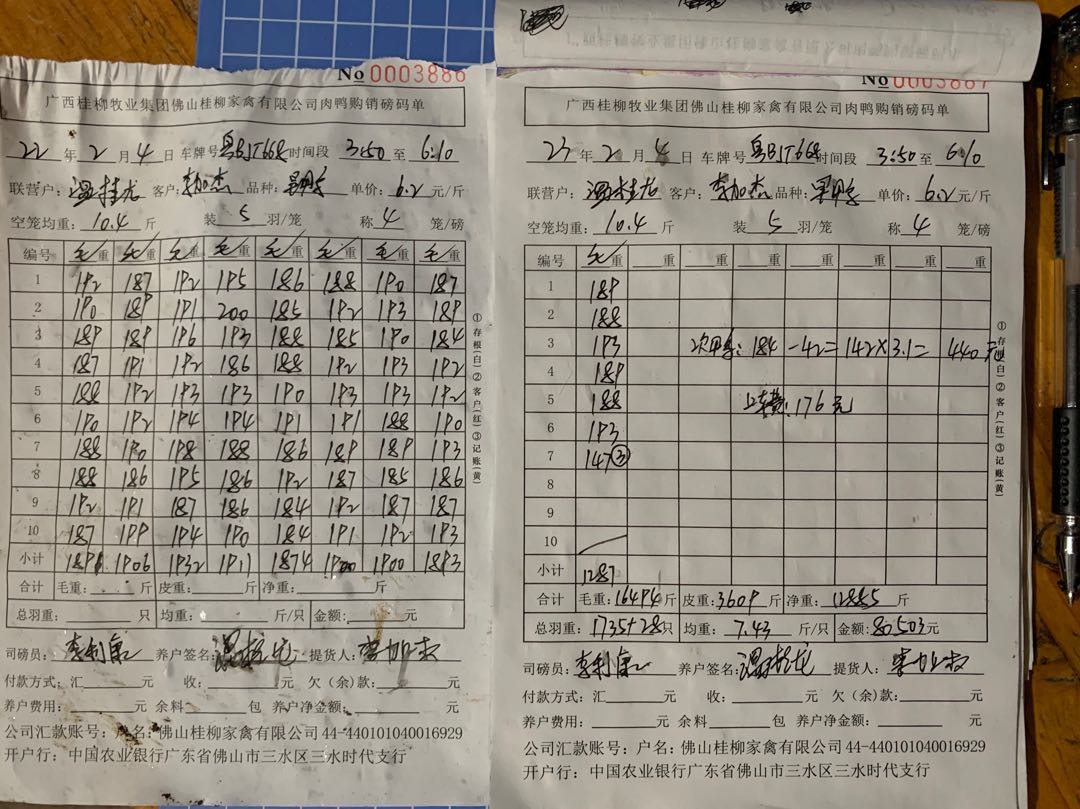 No 0003886
广西桂柳牧业集团佛山桂柳家禽有限公司肉鸭购销磅码单
22 年 2 月 4 日 车牌号 粤BJT668 时间段 3:50 至 6:10
联营户: 温桂龙 客户: 李加杰 品种: 单价: 6.2 元/斤
空笼均重: 10.4 斤 装 5 羽/笼 称 4 笼/磅
编号 毛/重 毛/重 毛/重 毛/重 毛/重 毛/重 毛/重 毛/重
1 192 187 192 195 186 188 190 187
2 190 189 191 200 185 192 193 189
3 189 189 196 193 188 185 190 184
4 187 191 192 186 188 192 193 192
5 188 192 193 193 190 193 193 192
6 190 192 194 194 191 191 188 190
7 188 190 198 188 186 189 189 193
8 188 186 195 186 192 187 185 186
9 192 191 187 186 184 192 187 187
10 187 199 194 190 184 191 192 193
小计 1891 1906 1932 1911 1874 1900 1900 1893
合计 毛重: 斤 皮重: 斤 净重: 斤
总羽重: 只 均重: 斤/只 金额: 元
司磅员: 李利 养户签名: 温桂龙 提货人: 李加杰
付款方式: 汇 元 收: 元 欠(余)款: 元
养户费用: 元 余料 包 养户净金额: 元
公司汇款账号: 户名: 佛山桂柳家禽有限公司44-440101040016929
开户行: 中国农业银行广东省佛山市三水区三水时代支行
①存根(白)②客户(红)③记账(黄)
No 0003887
广西桂柳牧业集团佛山桂柳家禽有限公司肉鸭购销磅码单
22 年 2 月 4 日 车牌号 粤BJT668 时间段 3:50 至 6:10
联营户: 温桂龙 客户: 李加杰 品种: 单价: 6.2 元/斤
空笼均重: 10.4 斤 装 5 羽/笼 称 4 笼/磅
编号 毛/重 重 重 重 重 重 重 重
1 189
2 188
3 193 184-42=142×3.1=440元
4 189
5 188 上车费: 176元
6 193
7 147③
8
9
10
小计 1287
合计 毛重: 16494斤 皮重: 3609斤 净重: 12885斤
总羽重: 1735+28只 均重: 7.43 斤/只 金额: 80503元
司磅员: 李利 养户签名: 温桂龙 提货人: 李加杰
付款方式: 汇 元 收: 元 欠(余)款: 元
养户费用: 元 余料 包 养户净金额: 元
公司汇款账号: 户名: 佛山桂柳家禽有限公司44-440101040016929
开户行: 中国农业银行广东省佛山市三水区三水时代支行
①存根(白)②客户(红)③记账(黄)